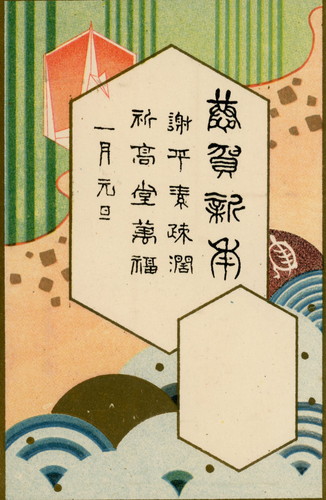 恭賀新年
謝平素疎濶
祈高堂萬福
一月元旦